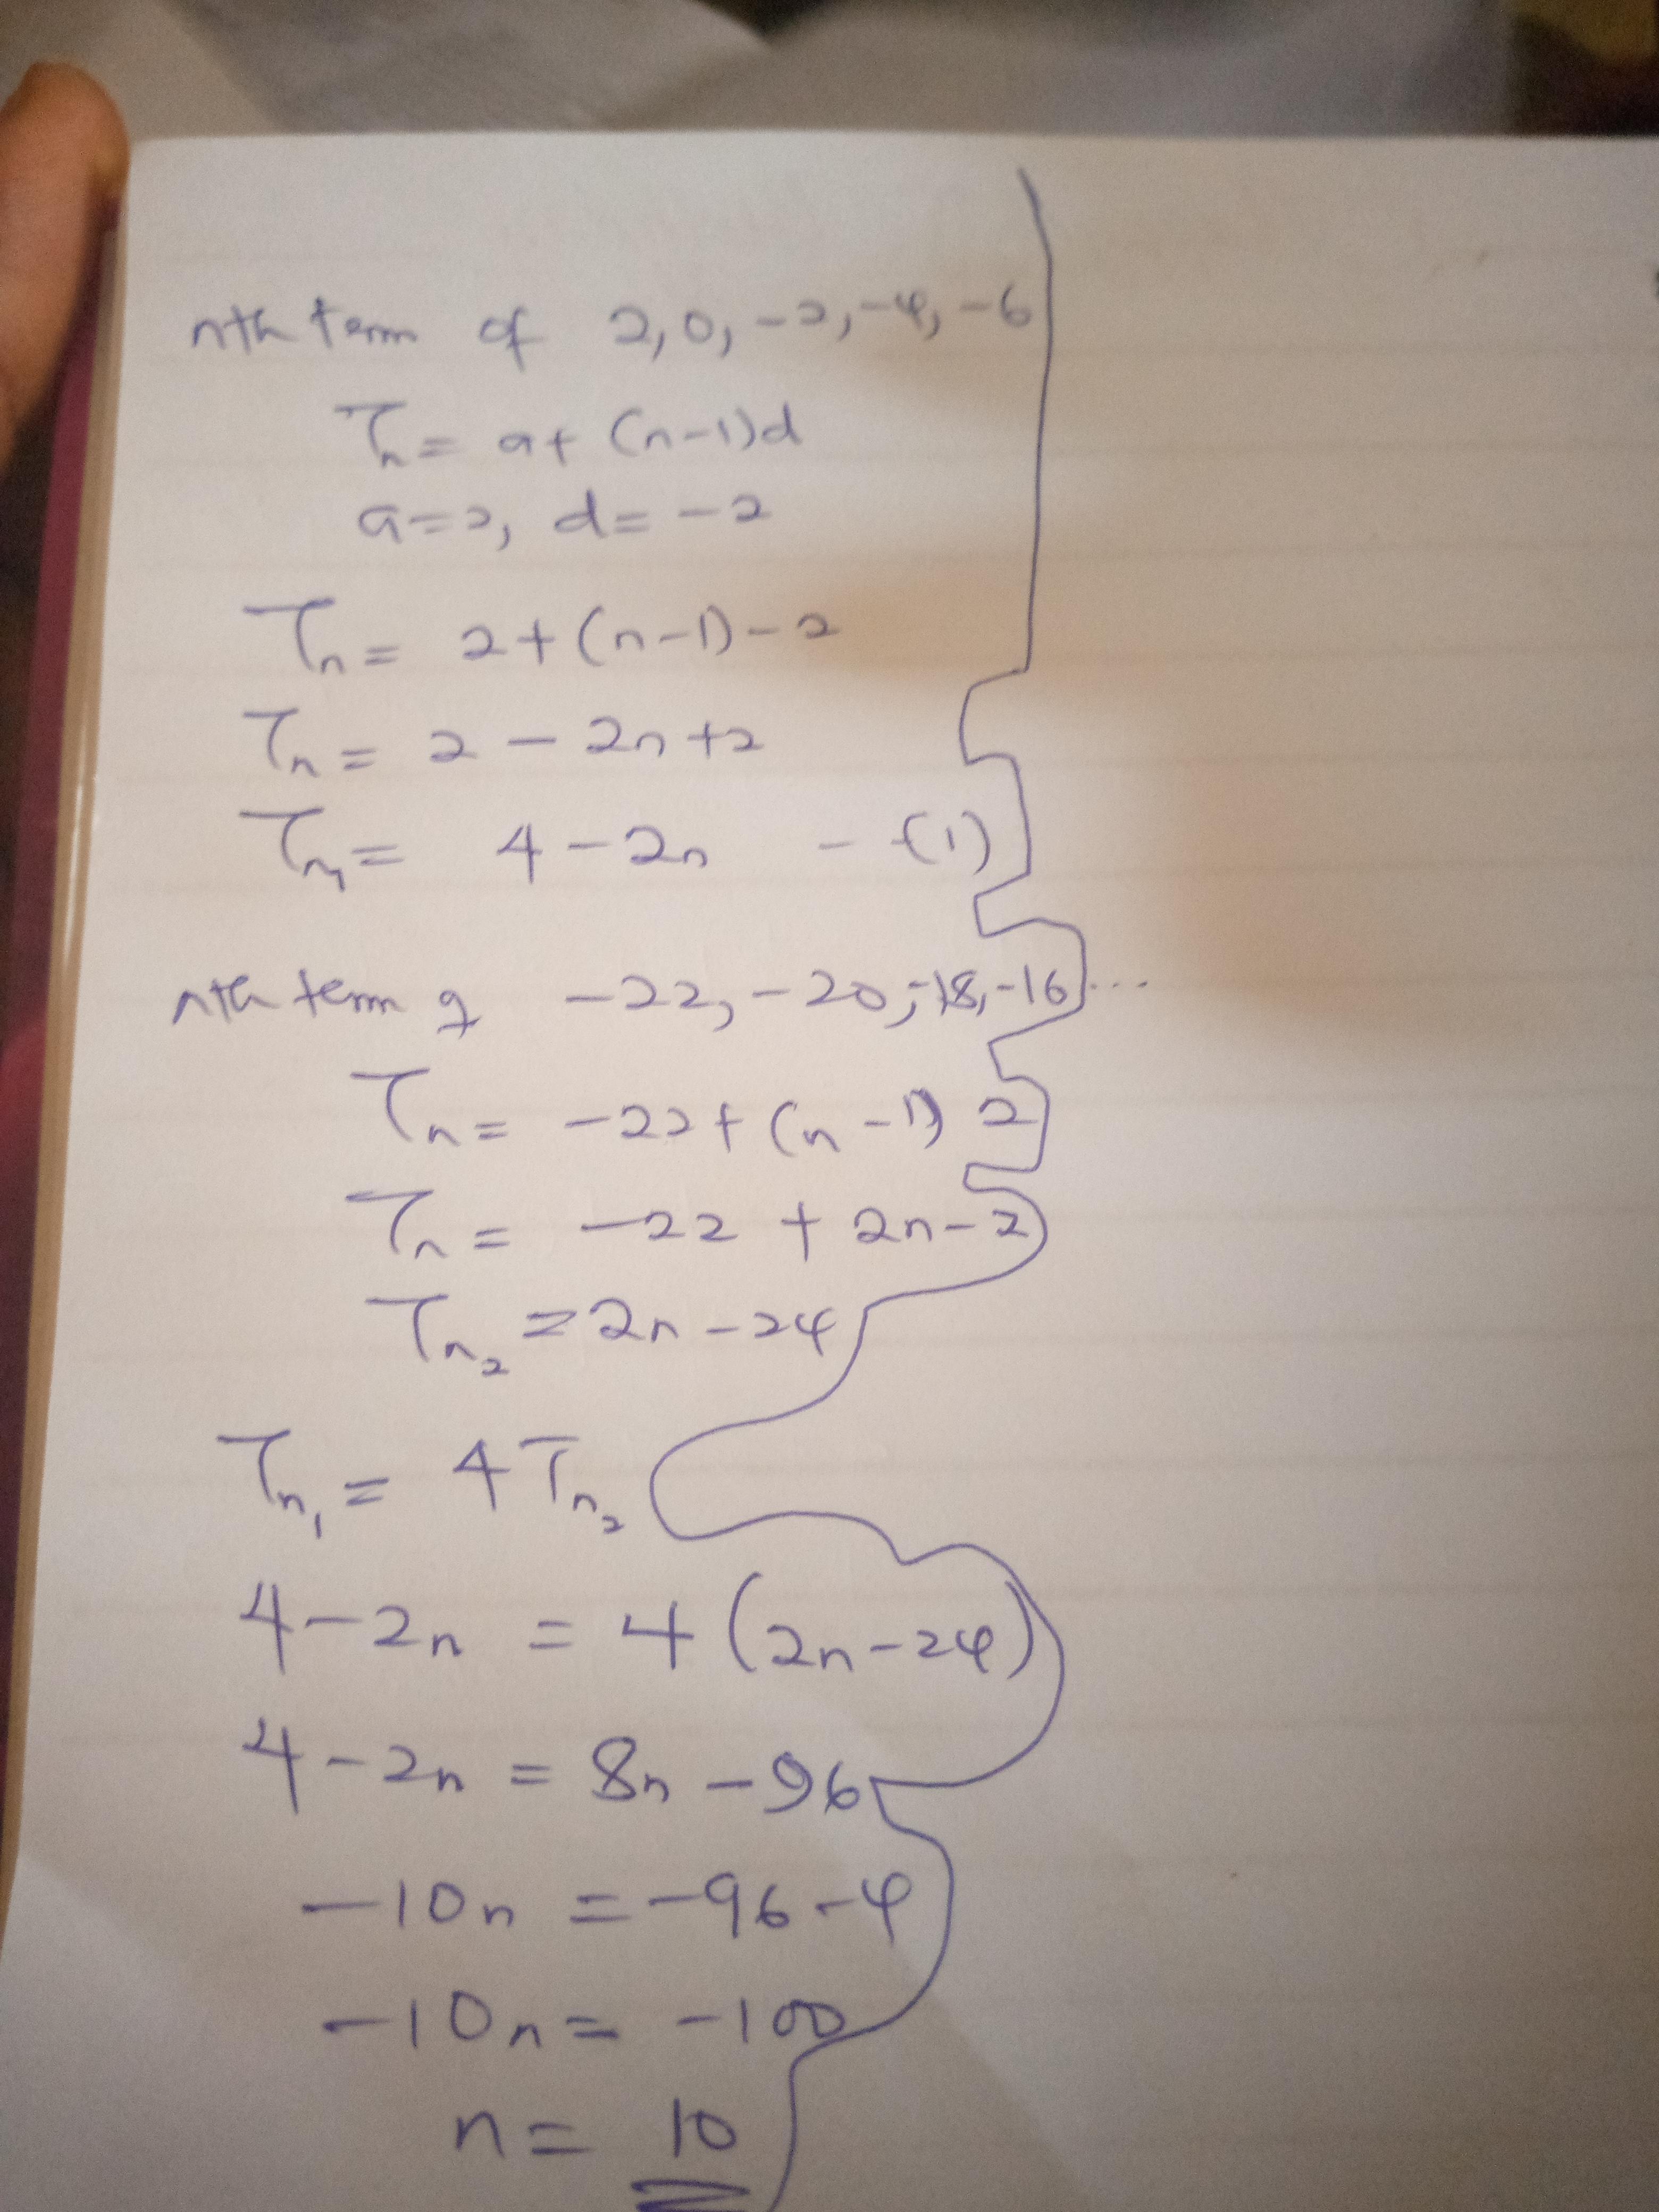 nth term of 2, 0, -2, -4, -6
Tn = a + (n-1)d
a=2, d= -2
Tn = 2 + (n-1) -2
Tn = 2 - 2n + 2
Tn₁ = 4 - 2n - (1)
nth term of -22, -20, -18, -16 ...
Tn = -22 + (n-1) 2
Tn = -22 + 2n - 2
Tn₂ = 2n - 24
Tn₁ = 4Tn₂
4 - 2n = 4(2n - 24)
4 - 2n = 8n - 96
-10n = -96 - 4
-10n = -100
n = 10